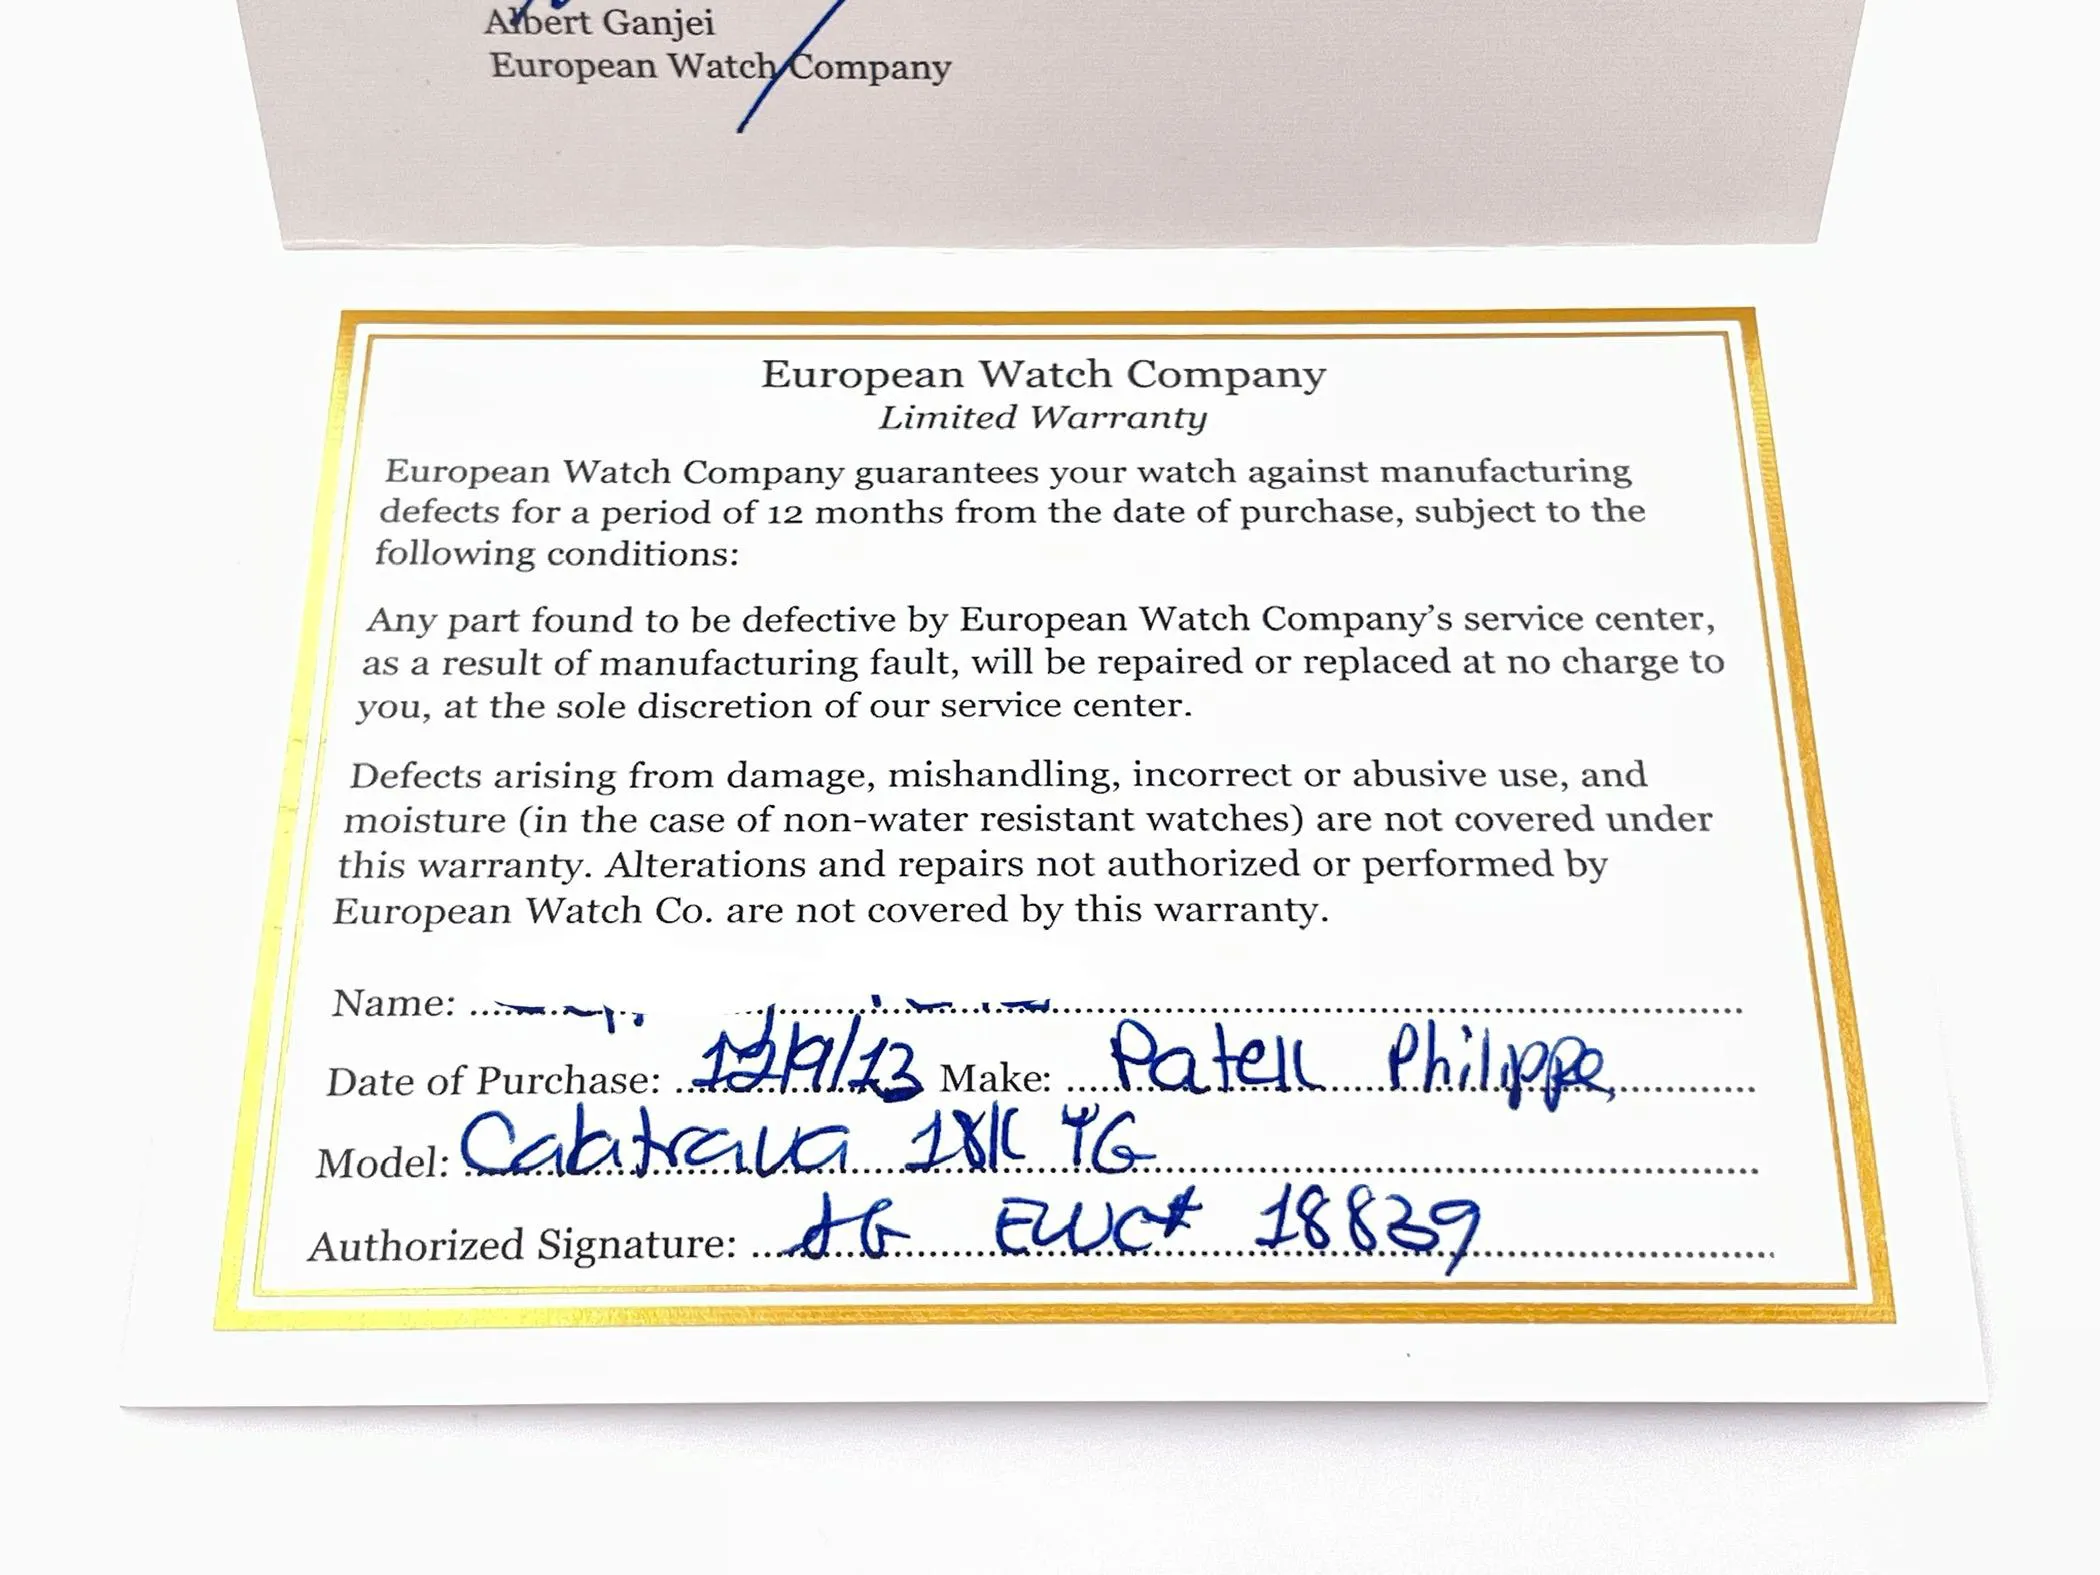 Albert Ganjei
European Watch Company
European Watch Company
Limited Warranty
European Watch Company guarantees your watch against manufacturing
defects for a period of 12 months from the date of purchase, subject to the
following conditions:
Any part found to be defective by European Watch Company's service center,
as a result of manufacturing fault, will be repaired or replaced at no charge to
you, at the sole discretion of our service center.
Defects arising from damage, mishandling, incorrect or abusive use, and
moisture (in the case of non-water resistant watches) are not covered under
this warranty. Alterations and repairs not authorized or performed by
European Watch Co. are not covered by this warranty.
Name:
Date of Purchase: 12/9/13 Make: Patell Philippe
Model: Calatrava 18K YG
Authorized Signature: AG EWC# 18839